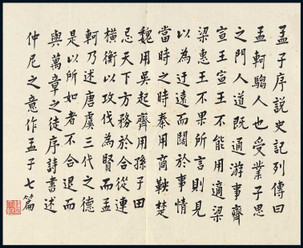 孟子序說史記列傳曰
孟軻騶人也受業子思
之門人道既通游事齊
宣王宣王不能用適梁
梁惠王不果所言則見
以為迂遠而闊於事情
當時之時秦用商鞅楚
魏用吳起齊用孫子田
忌天下方務於合從連
橫衡以攻伐為賢而孟
軻乃述唐虞三代之德
是以所如者不合退而
與萬章之徒序詩書述
仲尼之意作孟子七篇